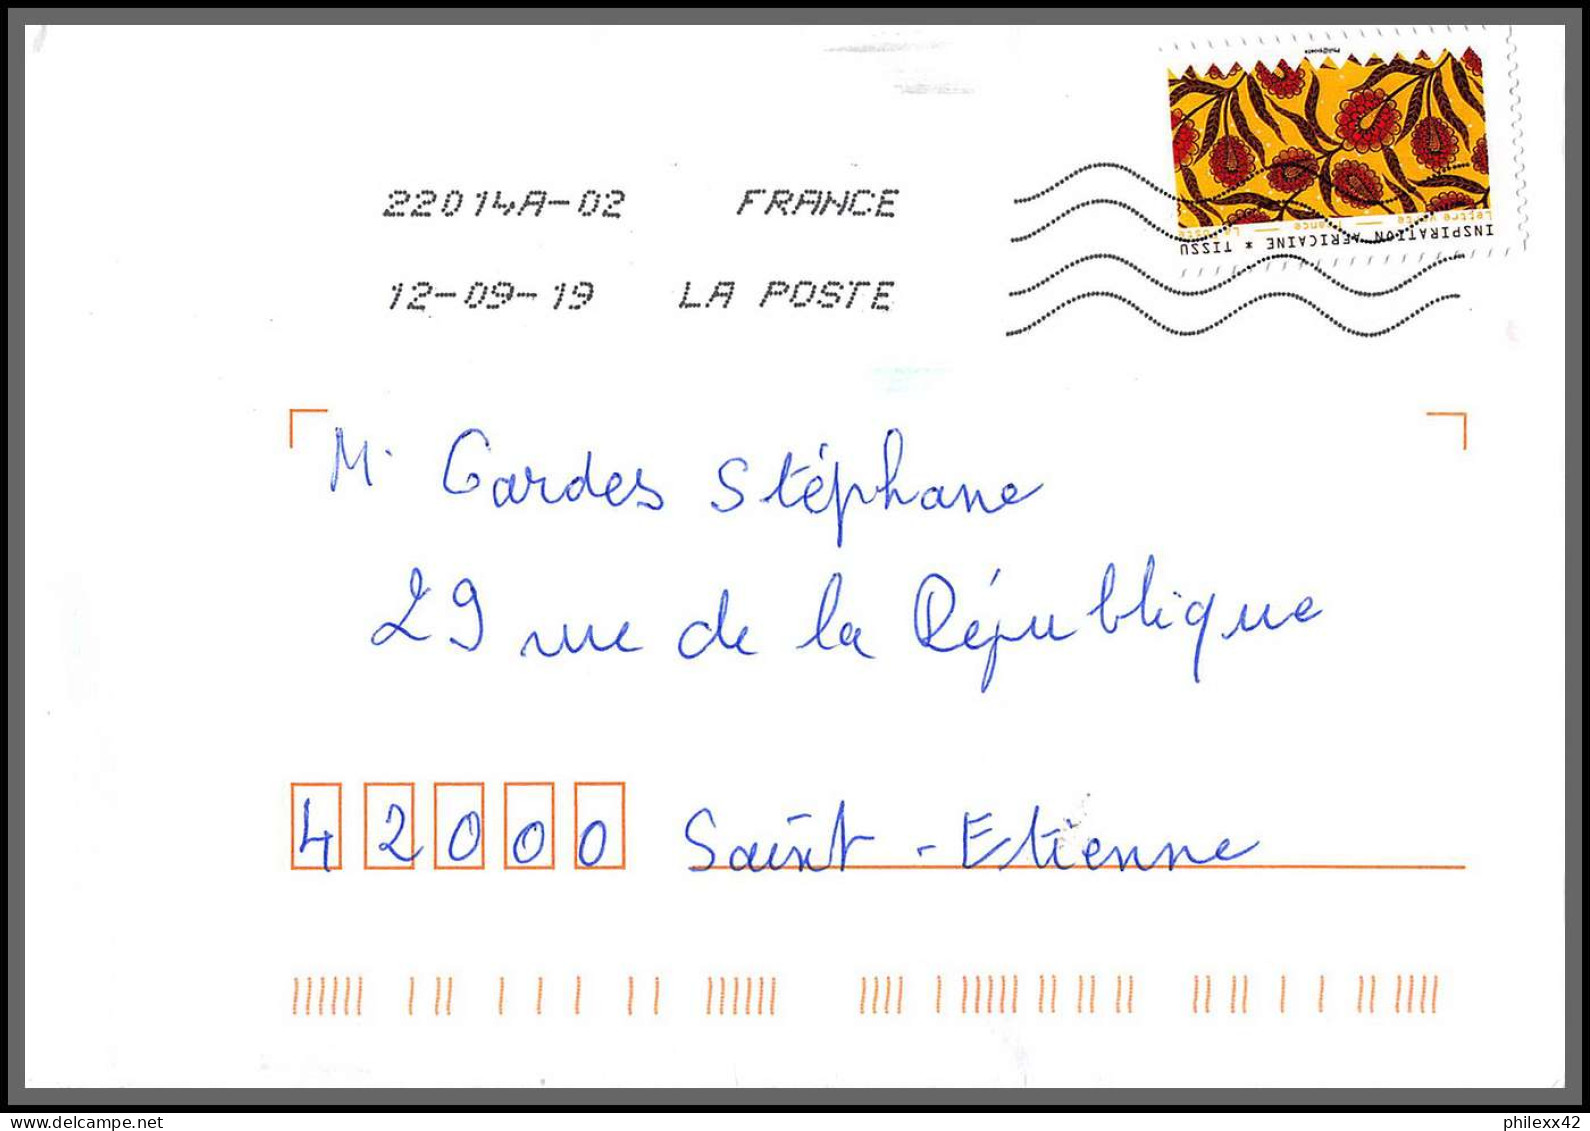 Phil@poste
INSPIRATION AFRICAINE * TISSU
Lettre verte — France — La Poste
22014A-02 FRANCE
12-09-19 LA POSTE
M. Gardes Stéphane
29 rue de la République
42000 Saint-Etienne
philexx42